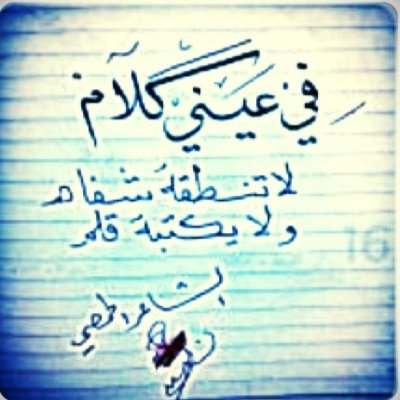 في عيني كلام
لا تنطقه شفاه
ولا يكتبه قلم
الشاعر